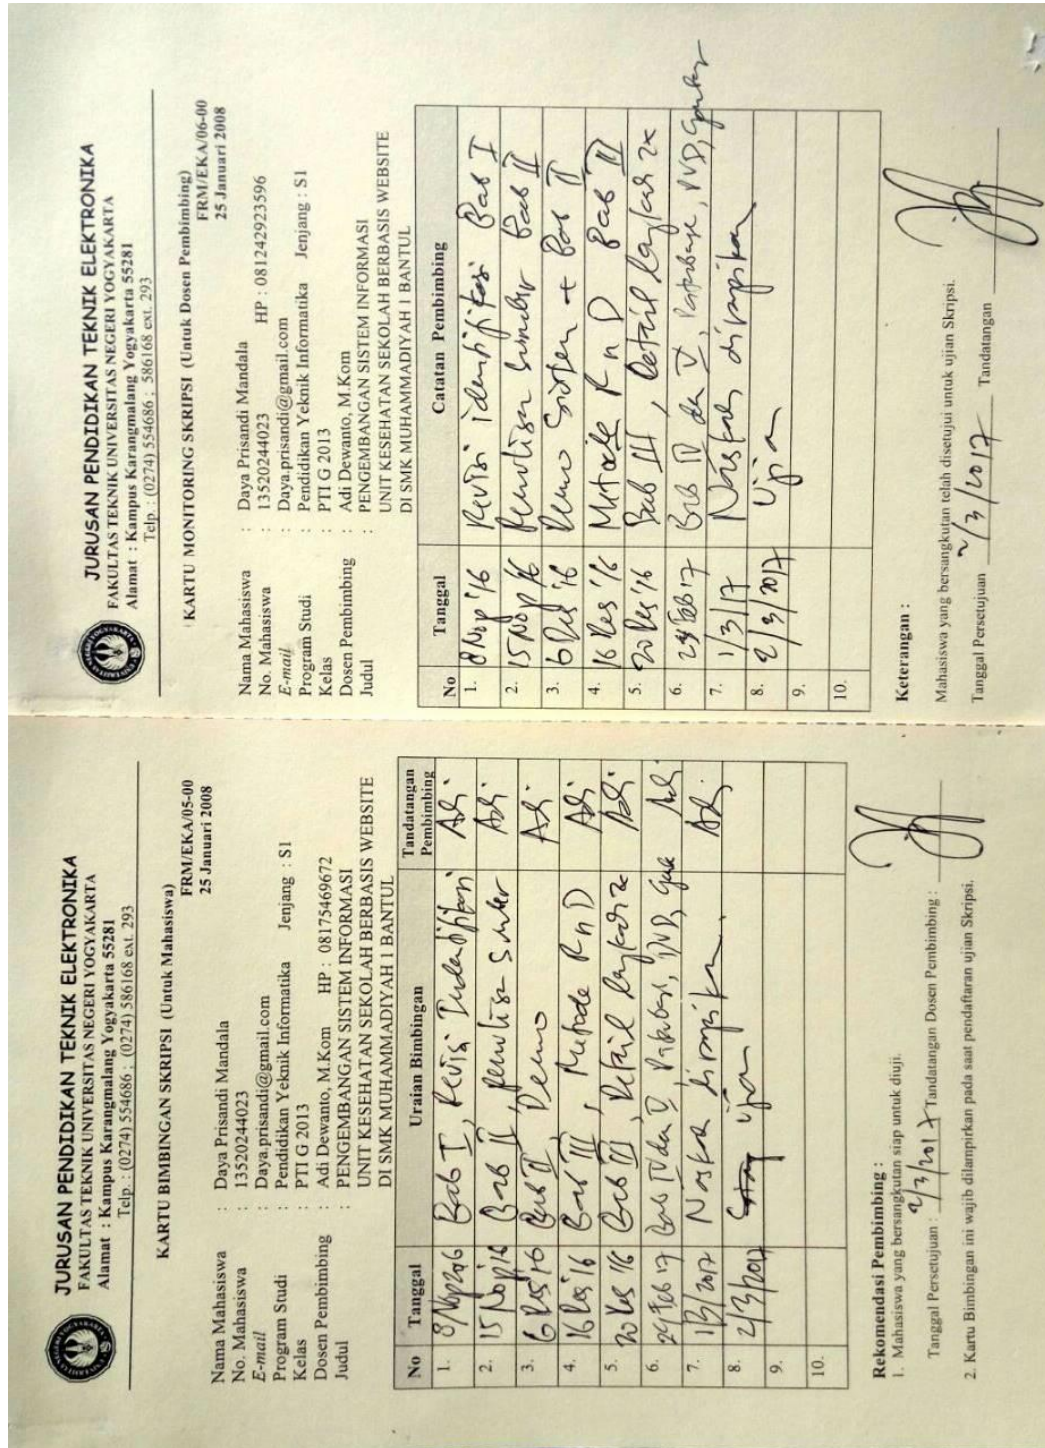 JURUSAN PENDIDIKAN TEKNIK ELEKTRONIKA
FAKULTAS TEKNIK UNIVERSITAS NEGERI YOGYAKARTA
Alamat : Kampus Karangmalang Yogyakarta 55281
Telp. : (0274) 554686 ; (0274) 586168 ext. 293
KARTU BIMBINGAN SKRIPSI (Untuk Mahasiswa)
FRM/EKA/05-00
25 Januari 2008
Nama Mahasiswa : Daya Prisandi Mandala
No. Mahasiswa : 13520244023
E-mail : Daya.prisandi@gmail.com
Program Studi : Pendidikan Yeknik Informatika Jenjang : S1
Kelas : PTI G 2013
Dosen Pembimbing : Adi Dewanto, M.Kom HP : 08175469672
Judul : PENGEMBANGAN SISTEM INFORMASI
UNIT KESEHATAN SEKOLAH BERBASIS WEBSITE
DI SMK MUHAMMADIYAH 1 BANTUL
No Tanggal Uraian Bimbingan Tandatangan Pembimbing
1. 8/Nop 2016 Bab I, Revisi Indentifikasi Adi
2. 15 Nop'16 Bab II, penulisan sumber Adi
3. 6 Des'16 Bab II, Demo Adi
4. 16 Des'16 Bab III, Metode R n D Adi
5. 20 Des '16 Bab III, Detail langkah 2x Adi
6. 24 Feb 17 Bab IV dan V, Adi
7. 1/3/2017 Naskah dirapikan. Adi
8. 2/3/2017 Ujian
9.
10.
Rekomendasi Pembimbing :
1. Mahasiswa yang bersangkutan siap untuk diuji.
Tanggal Persetujuan : 2/3/2017 Tandatangan Dosen Pembimbing :
2. Kartu Bimbingan ini wajib dilampirkan pada saat pendaftaran ujian Skripsi.
JURUSAN PENDIDIKAN TEKNIK ELEKTRONIKA
FAKULTAS TEKNIK UNIVERSITAS NEGERI YOGYAKARTA
Alamat : Kampus Karangmalang Yogyakarta 55281
Telp. : (0274) 554686 ; 586168 ext. 293
KARTU MONITORING SKRIPSI (Untuk Dosen Pembimbing)
FRM/EKA/06-00
25 Januari 2008
Nama Mahasiswa : Daya Prisandi Mandala
No. Mahasiswa : 13520244023 HP : 081242923596
E-mail : Daya.prisandi@gmail.com
Program Studi : Pendidikan Yeknik Informatika Jenjang : S1
Kelas : PTI G 2013
Dosen Pembimbing : Adi Dewanto, M.Kom
Judul : PENGEMBANGAN SISTEM INFORMASI
UNIT KESEHATAN SEKOLAH BERBASIS WEBSITE
DI SMK MUHAMMADIYAH 1 BANTUL
No Tanggal Catatan Pembimbing
1. 8 Nop '16 Revisi identifikasi Bab I
2. 15 Nop '16 Penulisan sumber Bab II
3. 6 Des '16 Demo + Bab II
4. 16 Des '16 Metode R n D Bab III
5. 20 Des '16 Bab III, Detail langkah 2x
6. 24 Feb 17 Bab IV dan V,
7. 1/3/17 Naskah dirapikan
8. 2/3/2017 Ujian
9.
10.
Keterangan :
Mahasiswa yang bersangkutan telah disetujui untuk ujian Skripsi.
Tanggal Persetujuan 2/3/2017 Tandatangan